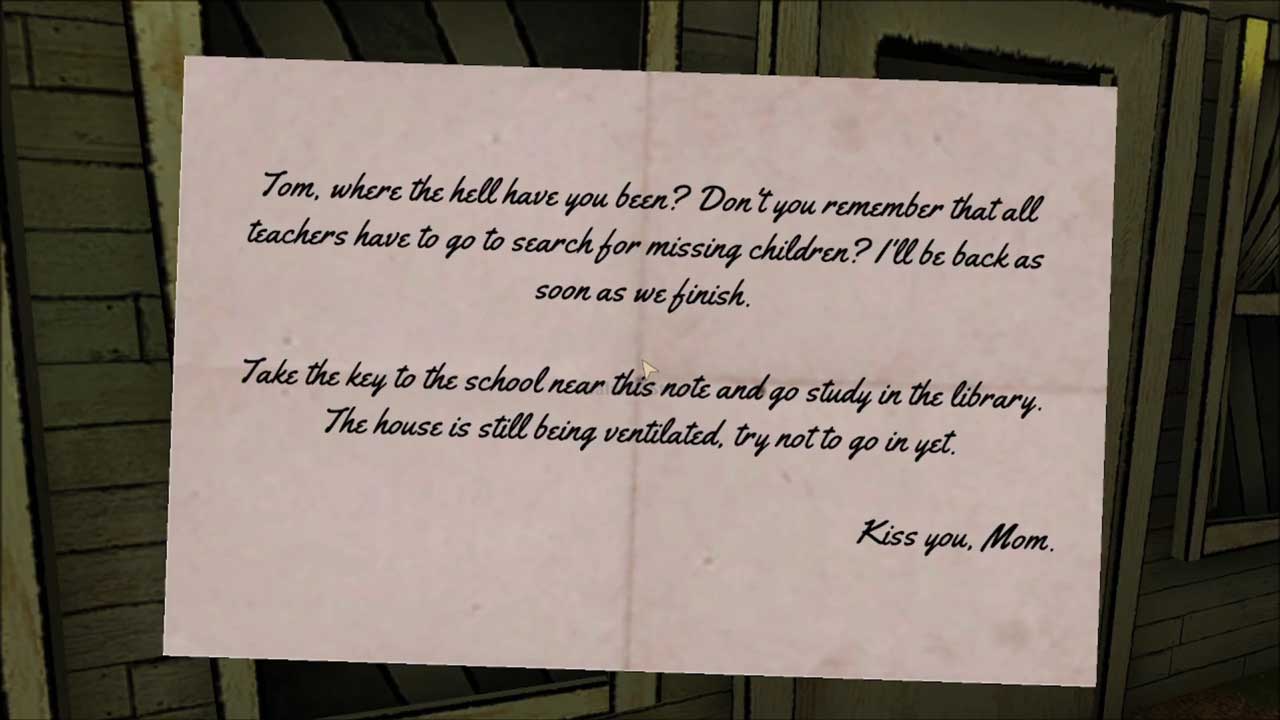 Tom, where the hell have you been? Don't you remember that all
teachers have to go to search for missing children? I'll be back as
soon as we finish.
Take the key to the school near this note and go study in the library.
The house is still being ventilated, try not to go in yet.
Kiss you, Mom.